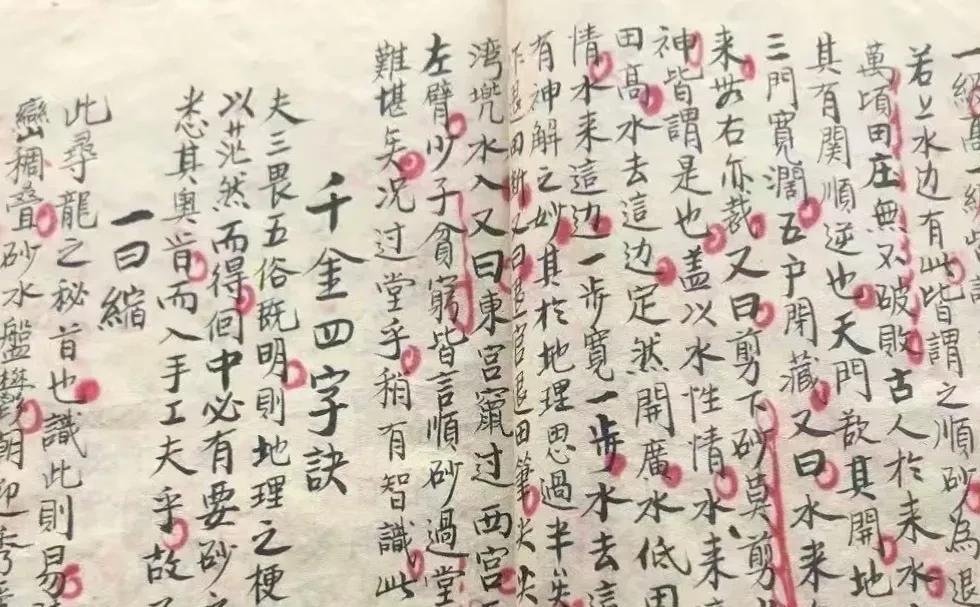 若上水边有此皆謂之順砂為退
萬頃田庄無不破敗古人於来水
其有関順逆也天門欲其開地
三門寬濶五户閉藏又曰水来
来安右亦裁又曰剪下砂莫剪
神皆謂是也盖以水性情水来
田高水去這边定然開廣水低田
情水来這边一步寬一步水去這
有神解之妙其於地理思過半矣
湾兜水入又曰東宫竄过西宫
左臂少子貧窮皆言順砂過堂
難堪矣况过堂乎稍有智識此
千金四字訣
夫三畏五俗既明則地理之梗
以茫然而得個中必有要砂
悉其奥旨而入手工夫乎故
一曰縮
此尋龍之秘旨也識此則易
巒山稠叠砂水盤繞朝迎